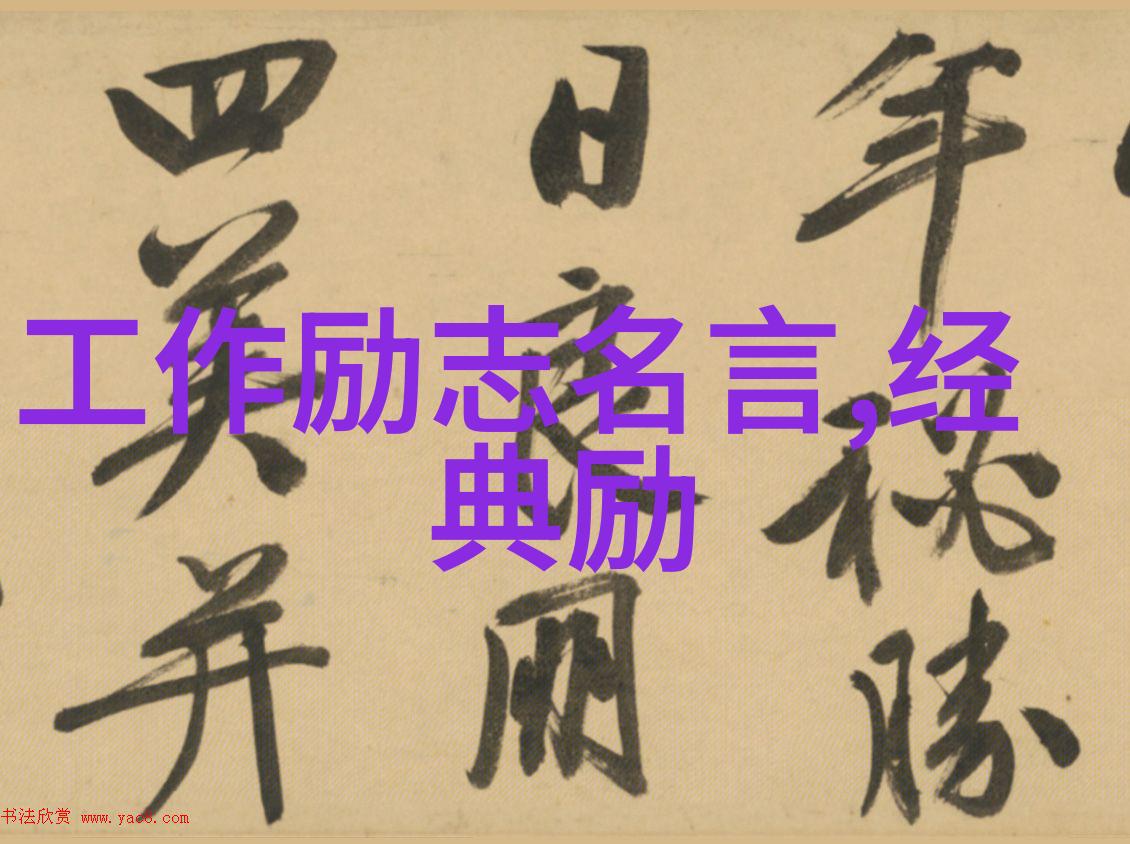 工作励志名言,经
典励
年秘勝
日良朋
四美并
书法欣赏 www.yac8.com